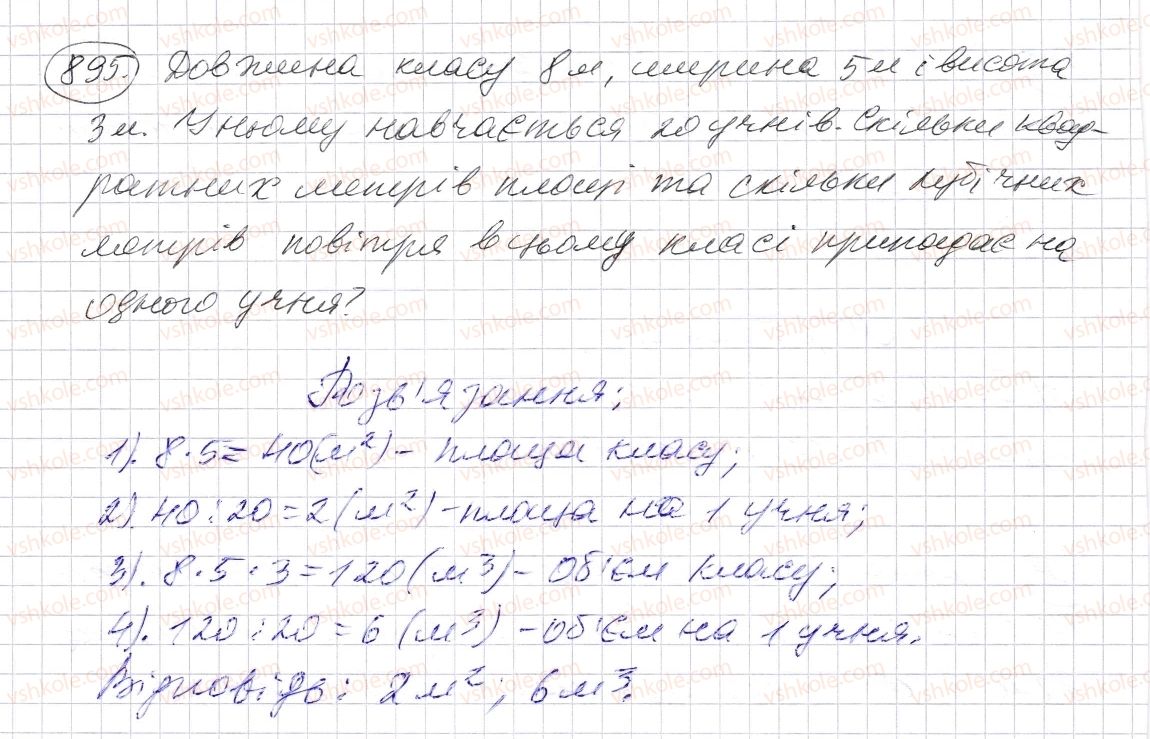 895. Довжина класу 8 м, ширина 5 м і висота
3 м. У ньому навчається 20 учнів. Скільки квад-
ратних метрів площі та скільки кубічних
метрів повітря в цьому класі припадає на
одного учня?
Розв'язання:
1). 8·5=40(м²) - площа класу;
2). 40:20=2(м²) - площа на 1 учня;
3). 8·5·3=120(м³) - об'єм класу;
4). 120:20=6(м³) - об'єм на 1 учня.
Відповідь: 2 м²; 6 м³.